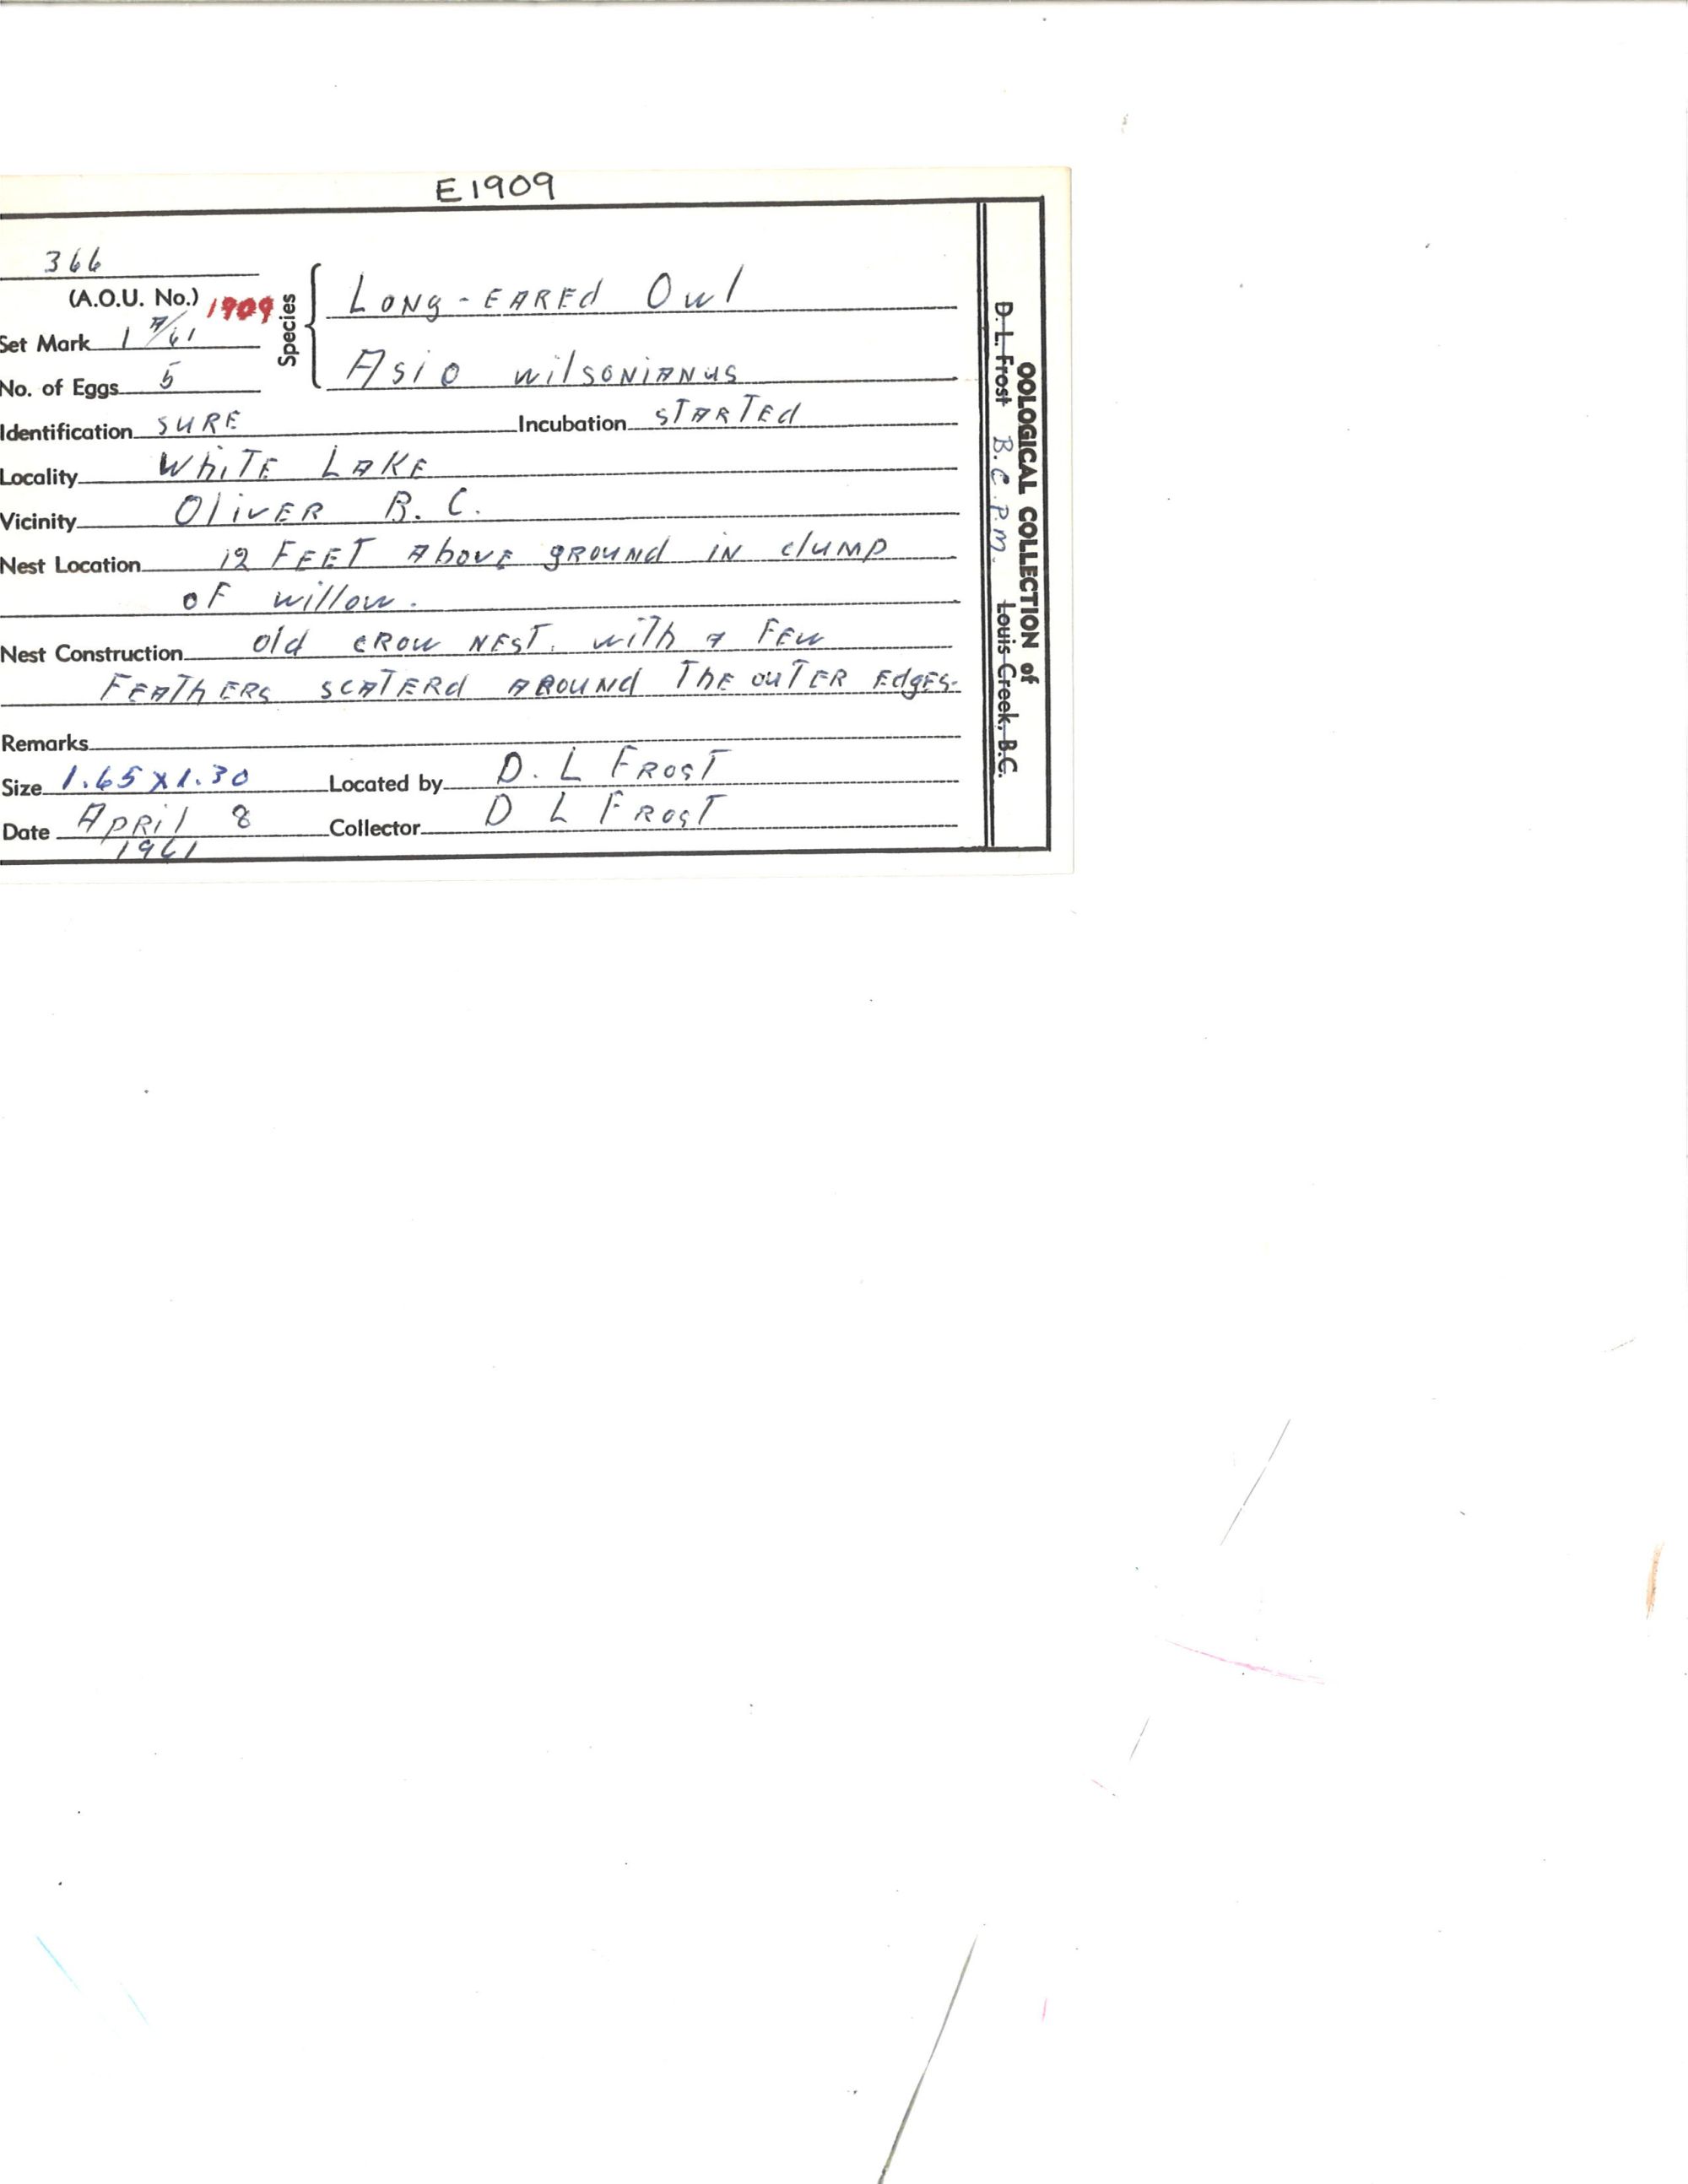 E1909
366
(A.O.U. No.) 1909
Species
Long-eared Owl
Asio wilsonianus
Set Mark 1 A/61
No. of Eggs 5
Identification sure Incubation started
Locality White Lake
Vicinity Oliver B.C.
Nest Location 12 feet above ground in clump
of willow.
Nest Construction old crow nest. with a few
feathers scaterd around the outer edges.
Remarks
Size 1.65 X 1.30 Located by D. L Frost
Date April 8 Collector D L Frost
1961
OOLOGICAL COLLECTION of
D. L. Frost B.C.P.M. Louis Creek, B.C.